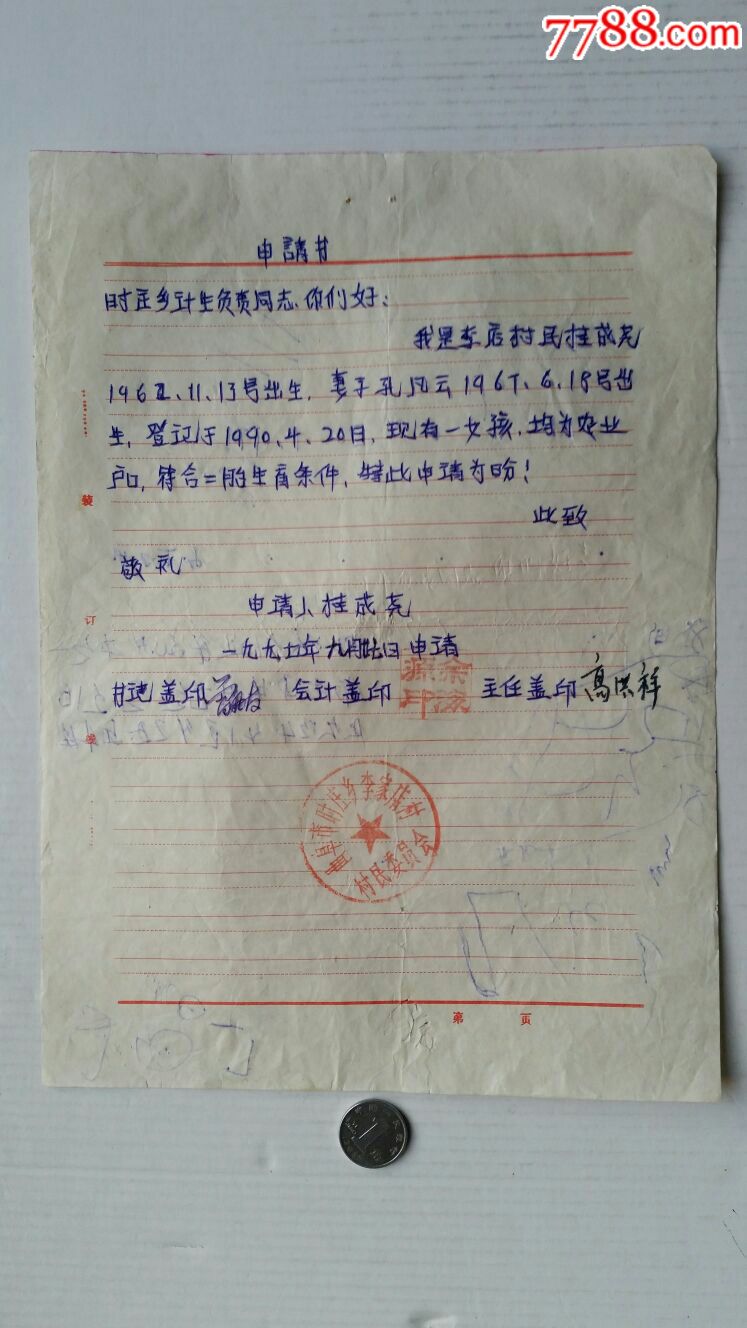 7788.com
申請书
时庄乡计生负责同志、你们好:
我是李店村民桂成尧
1962、11、13号出生，妻子孔凤云1967、6、18号出
生，登记于1990、4、20日，现有一女孩，均为农业
户口，符合二胎生育条件，特此申请为盼！
此致
敬礼
申请人桂成尧
一九九七年九月 日申请
盖印 会计盖印 主任盖印 高洪祥
装
订
曲阜市时庄乡李家店村
村民委员会
第 页
1